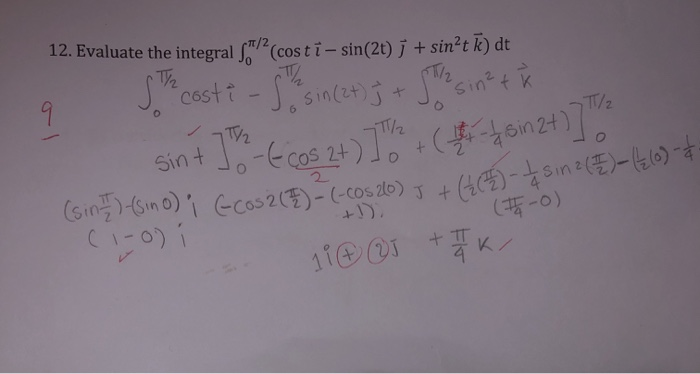 12. Evaluate the integral ∫₀^{π/2} (cos t i⃗ − sin(2t) j⃗ + sin²t k⃗) dt
∫₀^{π/2} cost i⃗ − ∫₀^{π/2} sin(2t) j⃗ + ∫₀^{π/2} sin² t k⃗
9
sint ]₀^{π/2} − (−cos 2t) ]₀^{π/2} + ( t/2 − 1/4 sin 2t) ]₀^{π/2}
2
(sin π/2) − (sin 0) i (−cos 2(π/2) − (−cos 2(0) J + (1/2(π/2) − 1/4 sin 2(π/2) − (1/2(0) − 1/4
(1 − 0) i +1) (π/4 − 0)
1i + 2J + π/4 K